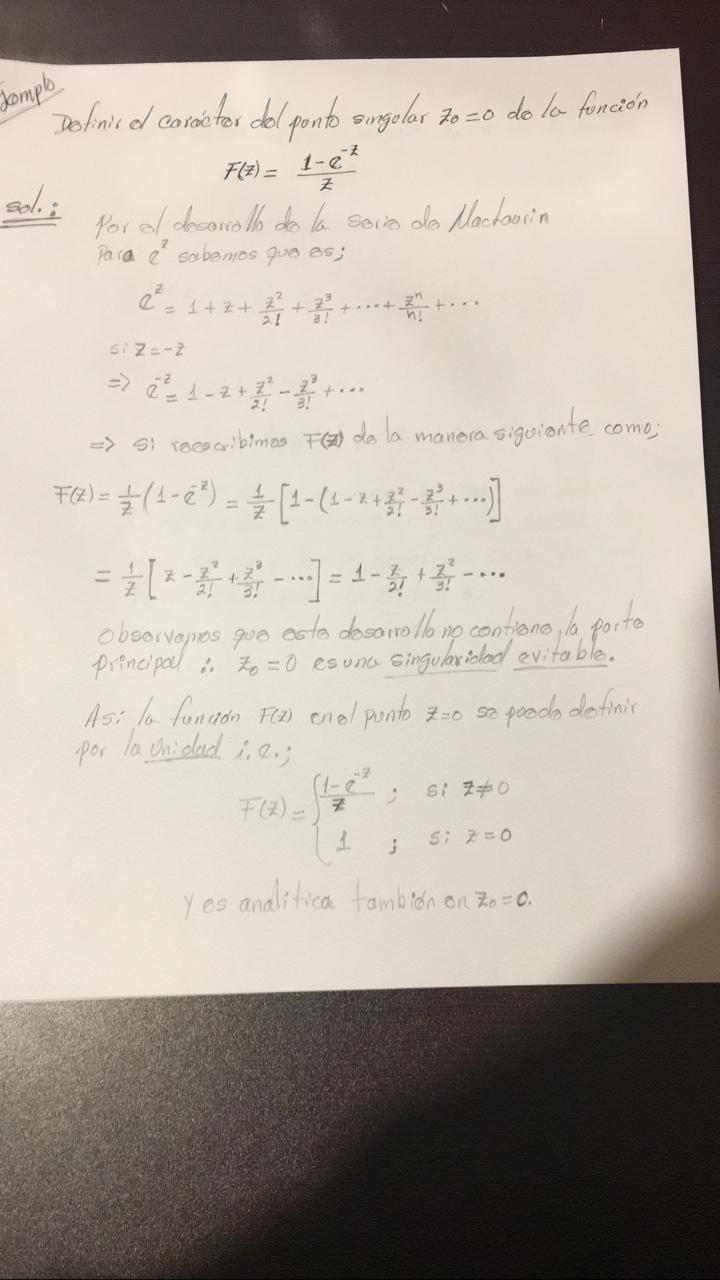 Ejemplo
Definir el carácter del punto singular z₀=0 de la función
F(z) = (1-e^{-z})/z
sol.:
Por el desarrollo de la serie de Maclaurin
Para e^z sabemos que es;
e^z = 1 + z + z²/2! + z³/3! + ··· + zⁿ/n! + ···
si z = -z
=> e^{-z} = 1 - z + z²/2! - z³/3! + ···
=> si reescribimos F(z) de la manera siguiente como;
F(z) = 1/z (1-e^{-z}) = 1/z [1-(1-z+z²/2!-z³/3!+···)]
= 1/z [z - z²/2! + z³/3! - ···] = 1 - z/2! + z²/3! - ···
Observamos que este desarrollo no contiene, la parte
principal ∴ z₀=0 es una singularidad evitable.
Así la función F(z) en el punto z=0 se puede definir
por la unidad i.e.;
F(z) = { (1-e^{-z})/z ; si z≠0
1 ; si z=0
y es analítica también en z₀=0.